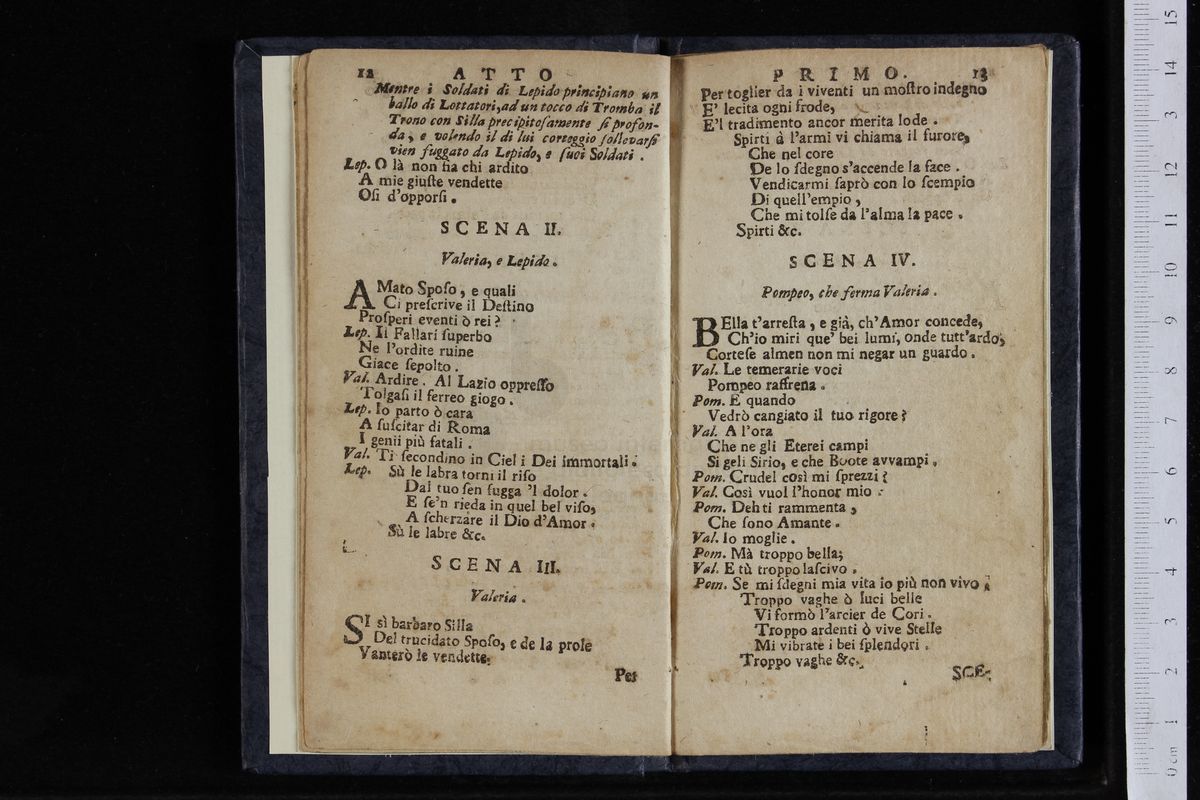 12 ATTO
Mentre i Soldati di Lepido principiano un
ballo di Lottatori, ad un tocco di Tromba il
Trono con Silla precipitoſamente ſi profon-
da, e volendo il di lui corteggio ſollevarſi
vien fuggato da Lepido, e ſuoi Soldati.
Lep. O là non ſia chi ardito
A mie giuſte vendette
Oſi d'opporſi.
SCENA II.
Valeria, e Lepido.
AMato Spoſo, e quali
Ci preſcrive il Deſtino
Proſperi eventi ò rei?
Lep. Il Fallari ſuperbo
Ne l'ordite ruine
Giace ſepolto.
Val. Ardire. Al Lazio oppreſſo
Tolgaſi il ferreo giogo.
Lep. Io parto ò cara
A ſuſcitar di Roma
I genii più fatali.
Val. Ti ſecondino in Ciel i Dei immortali.
Lep. Sù le labra torni il riſo
Dal tuo ſen fugga 'l dolor.
E ſe'n rieda in quel bel viſo,
A ſcherzare il Dio d'Amor.
Sù le labre &c.
SCENA III.
Valeria.
SI sì barbaro Silla
Del trucidato Spoſo, e de la prole
Vanterò le vendette.
Per
PRIMO. 13
Per toglier da i viventi un moſtro indegno
E' lecita ogni frode,
E'l tradimento ancor merita lode.
Spirti à l'armi vi chiama il furore,
Che nel core
De lo ſdegno s'accende la face.
Vendicarmi ſaprò con lo ſcempio
Di quell'empio,
Che mi tolſe da l'alma la pace.
Spirti &c.
SCENA IV.
Pompeo, che ferma Valeria.
BElla t'arreſta, e già, ch'Amor concede,
Ch'io miri que' bei lumi, onde tutt'ardo,
Corteſe almen non mi negar un guardo.
Val. Le temerarie voci
Pompeo raffrena.
Pom. E quando
Vedrò cangiato il tuo rigore?
Val. A l'ora
Che ne gli Eterei campi
Si geli Sirio, e che Boote avvampi.
Pom. Crudel così mi ſprezzi?
Val. Così vuol l'honor mio.
Pom. Deh ti rammenta,
Che ſono Amante.
Val. Io moglie.
Pom. Mà troppo bella;
Val. E tù troppo laſcivo.
Pom. Se mi ſdegni mia vita io più non vivo.
Troppo vaghe ò luci belle
Vi formò l'arcier de Cori.
Troppo ardenti ò vive Stelle
Mi vibrate i bei ſplendori.
Troppo vaghe &c.
SCE-